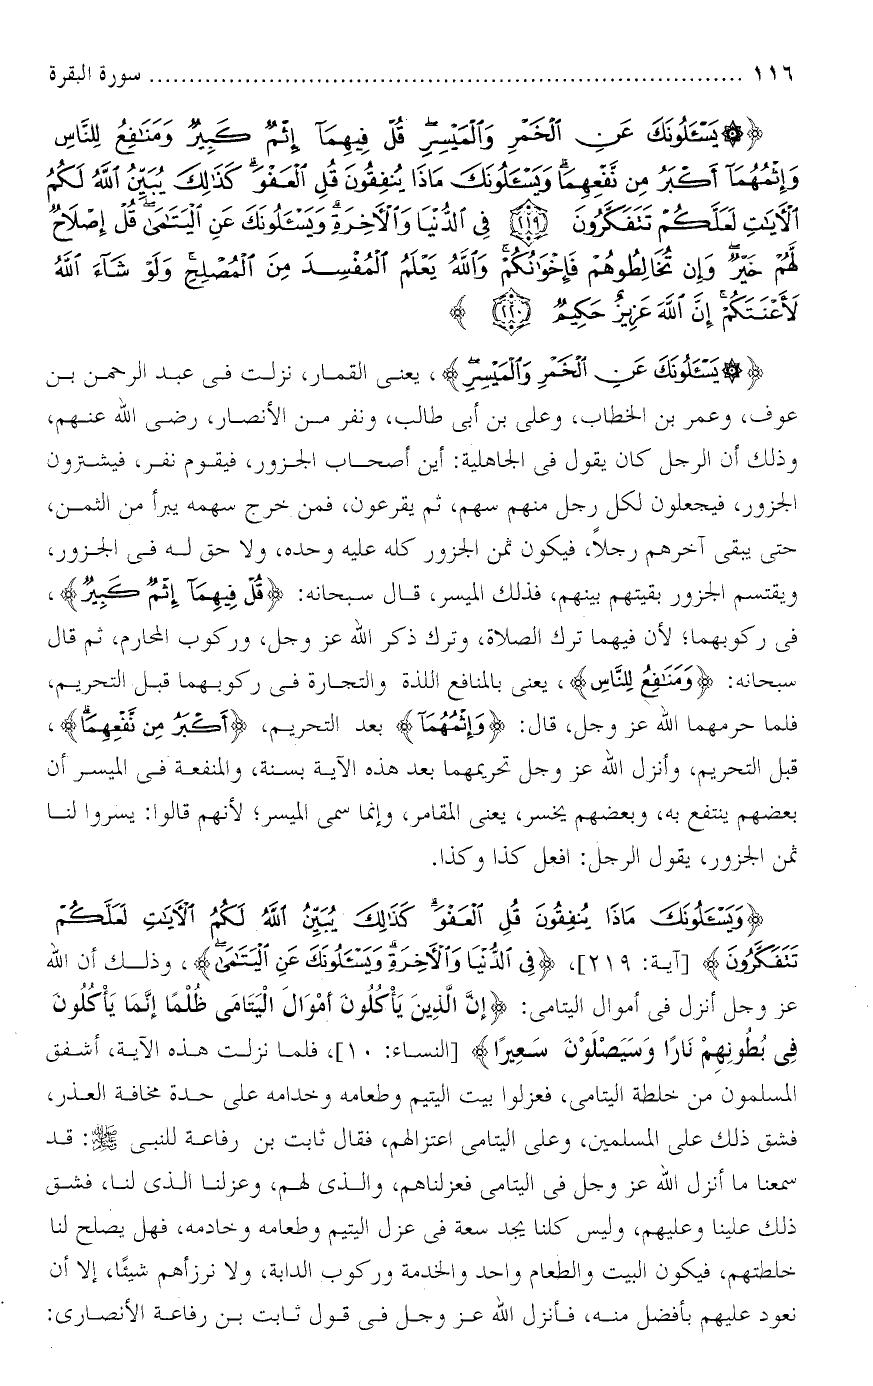 ١١٦ .......................................................................... سورة البقرة
﴿۞ يَسْـَٔلُونَكَ عَنِ ٱلْخَمْرِ وَٱلْمَيْسِرِۖ قُلْ فِيهِمَآ إِثْمٌ كَبِيرٌ وَمَنَٰفِعُ لِلنَّاسِ
وَإِثْمُهُمَآ أَكْبَرُ مِن نَّفْعِهِمَاۗ وَيَسْـَٔلُونَكَ مَاذَا يُنفِقُونَ قُلِ ٱلْعَفْوَۗ كَذَٰلِكَ يُبَيِّنُ ٱللَّهُ لَكُمُ
ٱلْءَايَٰتِ لَعَلَّكُمْ تَتَفَكَّرُونَ ٢١٩ فِى ٱلدُّنْيَا وَٱلْءَاخِرَةِۗ وَيَسْـَٔلُونَكَ عَنِ ٱلْيَتَٰمَىٰۖ قُلْ إِصْلَاحٌ
لَّهُمْ خَيْرٌۖ وَإِن تُخَالِطُوهُمْ فَإِخْوَٰنُكُمْۚ وَٱللَّهُ يَعْلَمُ ٱلْمُفْسِدَ مِنَ ٱلْمُصْلِحِۚ وَلَوْ شَآءَ ٱللَّهُ
لَأَعْنَتَكُمْۚ إِنَّ ٱللَّهَ عَزِيزٌ حَكِيمٌ ٢٢٠ ﴾
﴿۞ يَسْـَٔلُونَكَ عَنِ ٱلْخَمْرِ وَٱلْمَيْسِرِۖ﴾، يعنى القمار، نزلت فى عبد الرحمن بن
عوف، وعمر بن الخطاب، وعلى بن أبى طالب، ونفر من الأنصار، رضى الله عنهم،
وذلك أن الرجل كان يقول فى الجاهلية: أين أصحاب الجزور، فيقوم نفر، فيشترون
الجزور، فيجعلون لكل رجل منهم سهم، ثم يقرعون، فمن خرج سهمه يبرأ من الثمن،
حتى يبقى آخرهم رجلاً، فيكون ثمن الجزور كله عليه وحده، ولا حق له فى الجزور،
ويقتسم الجزور بقيتهم بينهم، فذلك الميسر، قال سبحانه: ﴿قُلْ فِيهِمَآ إِثْمٌ كَبِيرٌ﴾،
فى ركوبهما؛ لأن فيهما ترك الصلاة، وترك ذكر الله عز وجل، وركوب المحارم، ثم قال
سبحانه: ﴿وَمَنَٰفِعُ لِلنَّاسِ﴾، يعنى بالمنافع اللذة والتجارة فى ركوبهما قبل التحريم،
فلما حرمهما الله عز وجل، قال: ﴿وَإِثْمُهُمَآ﴾ بعد التحريم، ﴿أَكْبَرُ مِن نَّفْعِهِمَاۗ﴾،
قبل التحريم، وأنزل الله عز وجل تحريمهما بعد هذه الآية بسنة، والمنفعة فى الميسر أن
بعضهم ينتفع به، وبعضهم يخسر، يعنى المقامر، وإنما سمى الميسر؛ لأنهم قالوا: يسروا لنا
ثمن الجزور، يقول الرجل: افعل كذا وكذا.
﴿وَيَسْـَٔلُونَكَ مَاذَا يُنفِقُونَ قُلِ ٱلْعَفْوَۗ كَذَٰلِكَ يُبَيِّنُ ٱللَّهُ لَكُمُ ٱلْءَايَٰتِ لَعَلَّكُمْ
تَتَفَكَّرُونَ﴾ [آية: ٢١٩]، ﴿فِى ٱلدُّنْيَا وَٱلْءَاخِرَةِۗ وَيَسْـَٔلُونَكَ عَنِ ٱلْيَتَٰمَىٰۖ﴾، وذلك أن الله
عز وجل أنزل فى أموال اليتامى: ﴿إِنَّ الَّذِينَ يَأْكُلُونَ أَمْوَالَ الْيَتَامَى ظُلْمًا إِنَّمَا يَأْكُلُونَ
فِى بُطُونِهِمْ نَارًا وَسَيَصْلَوْنَ سَعِيرًا﴾ [النساء: ١٠]، فلما نزلت هذه الآية، أشفق
المسلمون من خلطة اليتامى، فعزلوا بيت اليتيم وطعامه وخدامه على حدة مخافة العذر،
فشق ذلك على المسلمين، وعلى اليتامى اعتزالهم، فقال ثابت بن رفاعة للنبى ﷺ: قد
سمعنا ما أنزل الله عز وجل فى اليتامى فعزلناهم، والذى لهم، وعزلنا الذى لنا، فشق
ذلك علينا وعليهم، وليس كلنا يجد سعة فى عزل اليتيم وطعامه وخادمه، فهل يصلح لنا
خلطتهم، فيكون البيت والطعام واحد والخدمة وركوب الدابة، ولا نرزأهم شيئًا، إلا أن
نعود عليهم بأفضل منه، فأنزل الله عز وجل فى قول ثابت بن رفاعة الأنصارى: